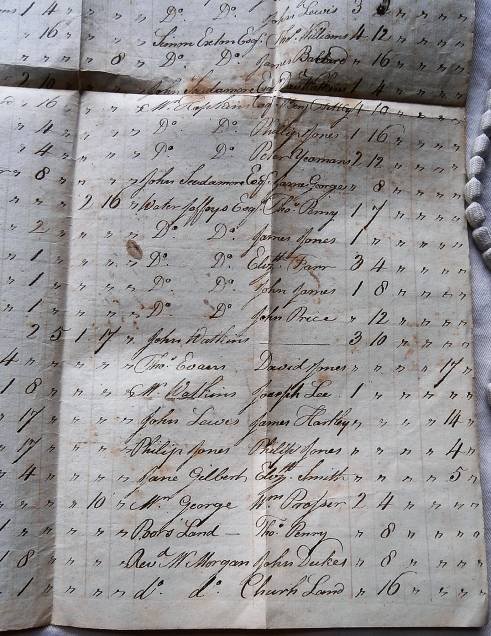 1 4 " " " " Do. Do. John Lewis 3
" 16 " " " " Simon Exton Esqr. Thos. Williams 4 12 " " " "
" " " 8 " " Do. Do. James Ballard " 16 " " " "
2 10 " " " " John Scudamore Esqr. Watkins 1 4 " " " "
" 16 " " " " Mr. Hopkins Esqr. 4 10 " " " "
" 4 " " " " Do. Do. Philip Jones 1 16 " " " "
" 4 " " " " Do. Do. Peter Yeomans 2 12 " " " "
" 8 " " " " John Scudamore Esqr. George " 8 " " " "
" " " " 2 16 " Water Jeffreys Esqr. Thos. Penny 1 7 " " " "
" 2 " " " " Do. Do. James Jones 1 " " " " "
" 1 " " " " Do. Do. Elizth. Farr 3 4 " " " "
" 1 " " " " Do. Do. John James 1 8 " " " "
" 1 " " " " Do. Do. John Price " 12 " " " "
2 5 1 17 " " John Watkins 3 10 " " " "
4 " " " " " " Thos. Evans David Jones " " " " 17 "
1 8 " " " " Mr. Watkins Joseph Lee 1 " " " " "
" 17 " " " " John Lewis James Hartley " " " " 14 "
" 17 " " " " Philip Jones Philip Jones " " " " 4 "
" 4 " " " " Jane Gilbert Elizth. Smith " " " " 5 "
" " " 10 " " Mr. George Wm. Prosser 2 4 " " " "
1 " " " " " Poor's Land — Thos. Penny " 8 " " " "
1 8 " " " " Revd. W. Morgan John Dukes " 8 " " " "
" 1 " " " " do. do. Churh Land " 16 " " " "